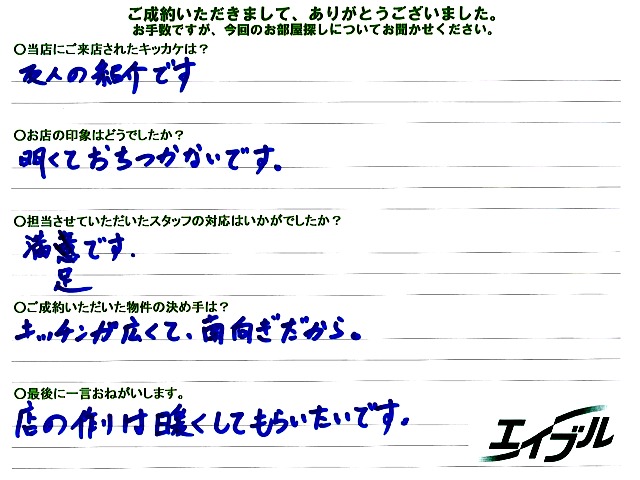 ご成約いただきまして、ありがとうございました。
お手数ですが、今回のお部屋探しについてお聞かせください。
○当店にご来店されたキッカケは？
友人の紹介です
○お店の印象はどうでしたか？
明くておちつかないです。
○担当させていただいたスタッフの対応はいかがでしたか？
満意です.
足
○ご成約いただいた物件の決め手は？
キッチンが広くて、南向きだから。
○最後に一言おねがいします。
店の作りは暖くしてもらいたいです。
エイブル